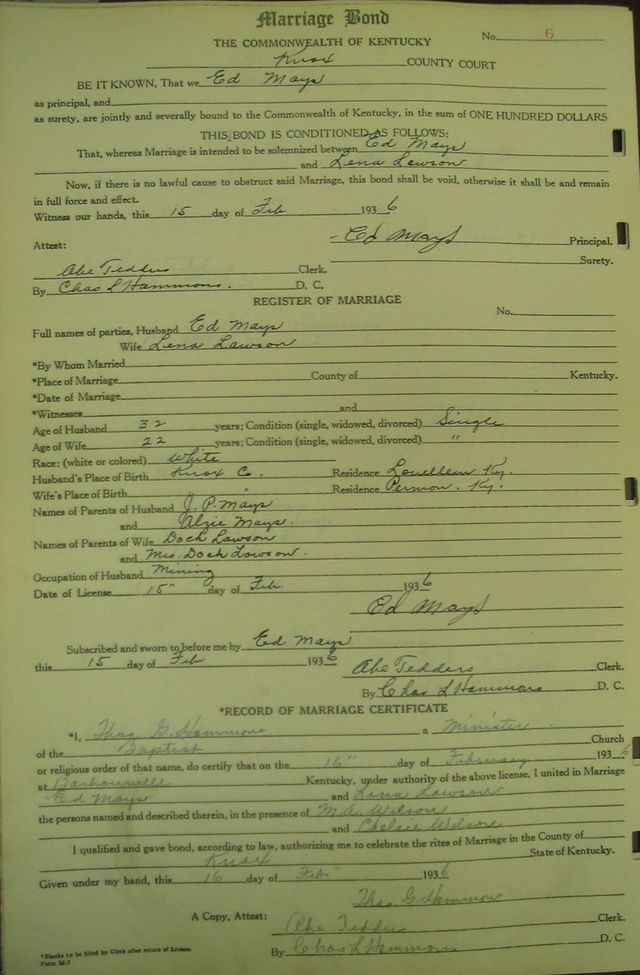 Marriage Bond
No. 6
THE COMMONWEALTH OF KENTUCKY
Knox COUNTY COURT
BE IT KNOWN, That we Ed Mays
as principal, and
as surety, are jointly and severally bound to the Commonwealth of Kentucky, in the sum of ONE HUNDRED DOLLARS
THIS BOND IS CONDITIONED AS FOLLOWS:
That, whereas Marriage is intended to be solemnized between Ed Mays
and Lena Lawson
Now, if there is no lawful cause to obstruct said Marriage, this bond shall be void, otherwise it shall be and remain
in full force and effect.
Witness our hands, this 15 day of Feb 1936
Ed Mays Principal.
Attest:
Surety.
Abe Tedders Clerk.
By Chas L Hammons. D. C.
REGISTER OF MARRIAGE
No.
Full names of parties, Husband Ed Mays
Wife Lena Lawson
*By Whom Married
*Place of Marriage County of Kentucky.
*Date of Marriage
*Witnesses and
Age of Husband 32 years; Condition (single, widowed, divorced) Single
Age of Wife 22 years; Condition (single, widowed, divorced) "
Race: (white or colored) White
Husband's Place of Birth Knox Co. Residence Louellen Ky.
Wife's Place of Birth " Residence Permon. Ky.
Names of Parents of Husband J. P. Mays
and Alzie Mays.
Names of Parents of Wife Doch Lawson
and Mrs. Doch Lawson.
Occupation of Husband Mining
Date of License 15" day of Feb. 1936
Ed Mays
Subscribed and sworn to before me by Ed Mays
this 15 day of Feb 1936
Abe Tedders Clerk.
By Chas L Hammons D. C.
*RECORD OF MARRIAGE CERTIFICATE
*I, Thos. G. Hammons a Minister
of the Baptist Church
or religious order of that name, do certify that on the 16" day of February 1936
at Barbourville Kentucky, under authority of the above license, I united in Marriage
Ed Mays and Lena Lawson
the persons named and described therein, in the presence of M. A. Wilson
and Chelsie Wilson
I qualified and gave bond, according to law, authorizing me to celebrate the rites of Marriage in the County of
Knox State of Kentucky.
Given under my hand, this 16 day of Feb" 1936
Thos. G. Hammons
A Copy, Attest: Abe Tedders Clerk.
By Chas L Hammons D. C.
*Blanks to be filled by Clerk after return of License
Form M-7